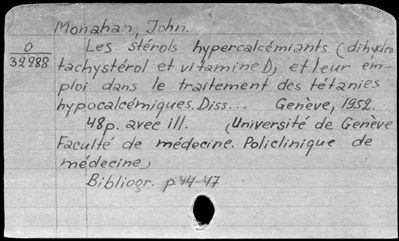 Monahan, John.
O
32988
Les stérols hypercalcémiants (dihydro
tachystérol et vitamine D, et leur em-
ploi dans le traitement des tétanies
hypocalcémiques. Diss... Genève, 1952.
48p. avec ill. (Université de Genève
Faculté de médecine. Policlinique de
médecine)
Bibliogr. p 44-47